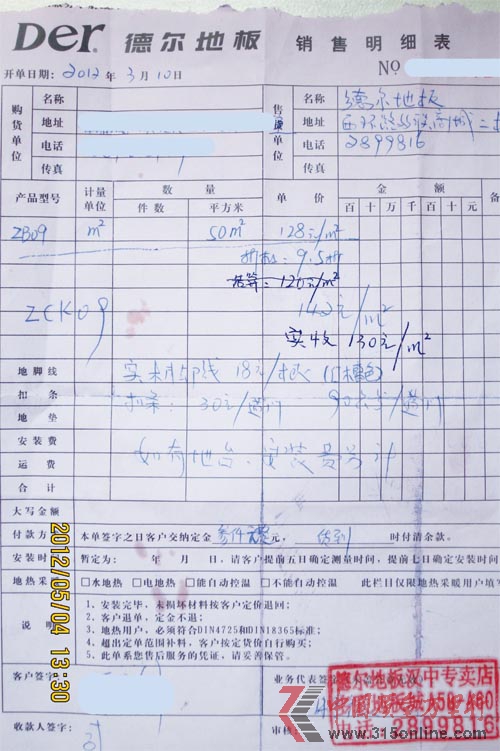 Der 德尔地板 销售明细表
开单日期：2012年3月10日 NO
购货单位 名称 售货单位 名称 德尔地板
地址 地址
电话 电话 2899816
传真 传真
产品型号 计量单位 数量 单价 金额 备
件数 平方米 百十万千百十元
ZB09 m² 50m² 128元/m²
折扣：9.5折
结算：120元/m²
ZCK09 142元/m²
实收130元/m²
地脚线 实木脚线 18元/根
扣条 扣条：30元/
地垫
安装费 如有地台，安装费另计
运费
合计
大写金额
付款方 本单签字之日客户交纳定金 元， 货到 时付清余款。
安装时 暂定为： 年 月 日，请客户提前五日确定测量时间，提前七日确定安装时
地热采 □水地热 □电地热 □能自动控温 □不能自动控温 此栏目仅限地热采暖用户填
说明 1、安装完毕，未损坏材料按客户定价退回；
2、客户退单，定金不退；
3、地热用户，必须符合DIN4725和DIN18365标准；
4、超出定单范围补料，客户按定货价自行购买；
5、此单系您售后服务的凭证，请妥善保管。
客户签字： 业务代表签字
德尔地板汉中专卖店
电话：2899816
收款人签字： 审核：
www.315online.com
2012/05/04 13:30